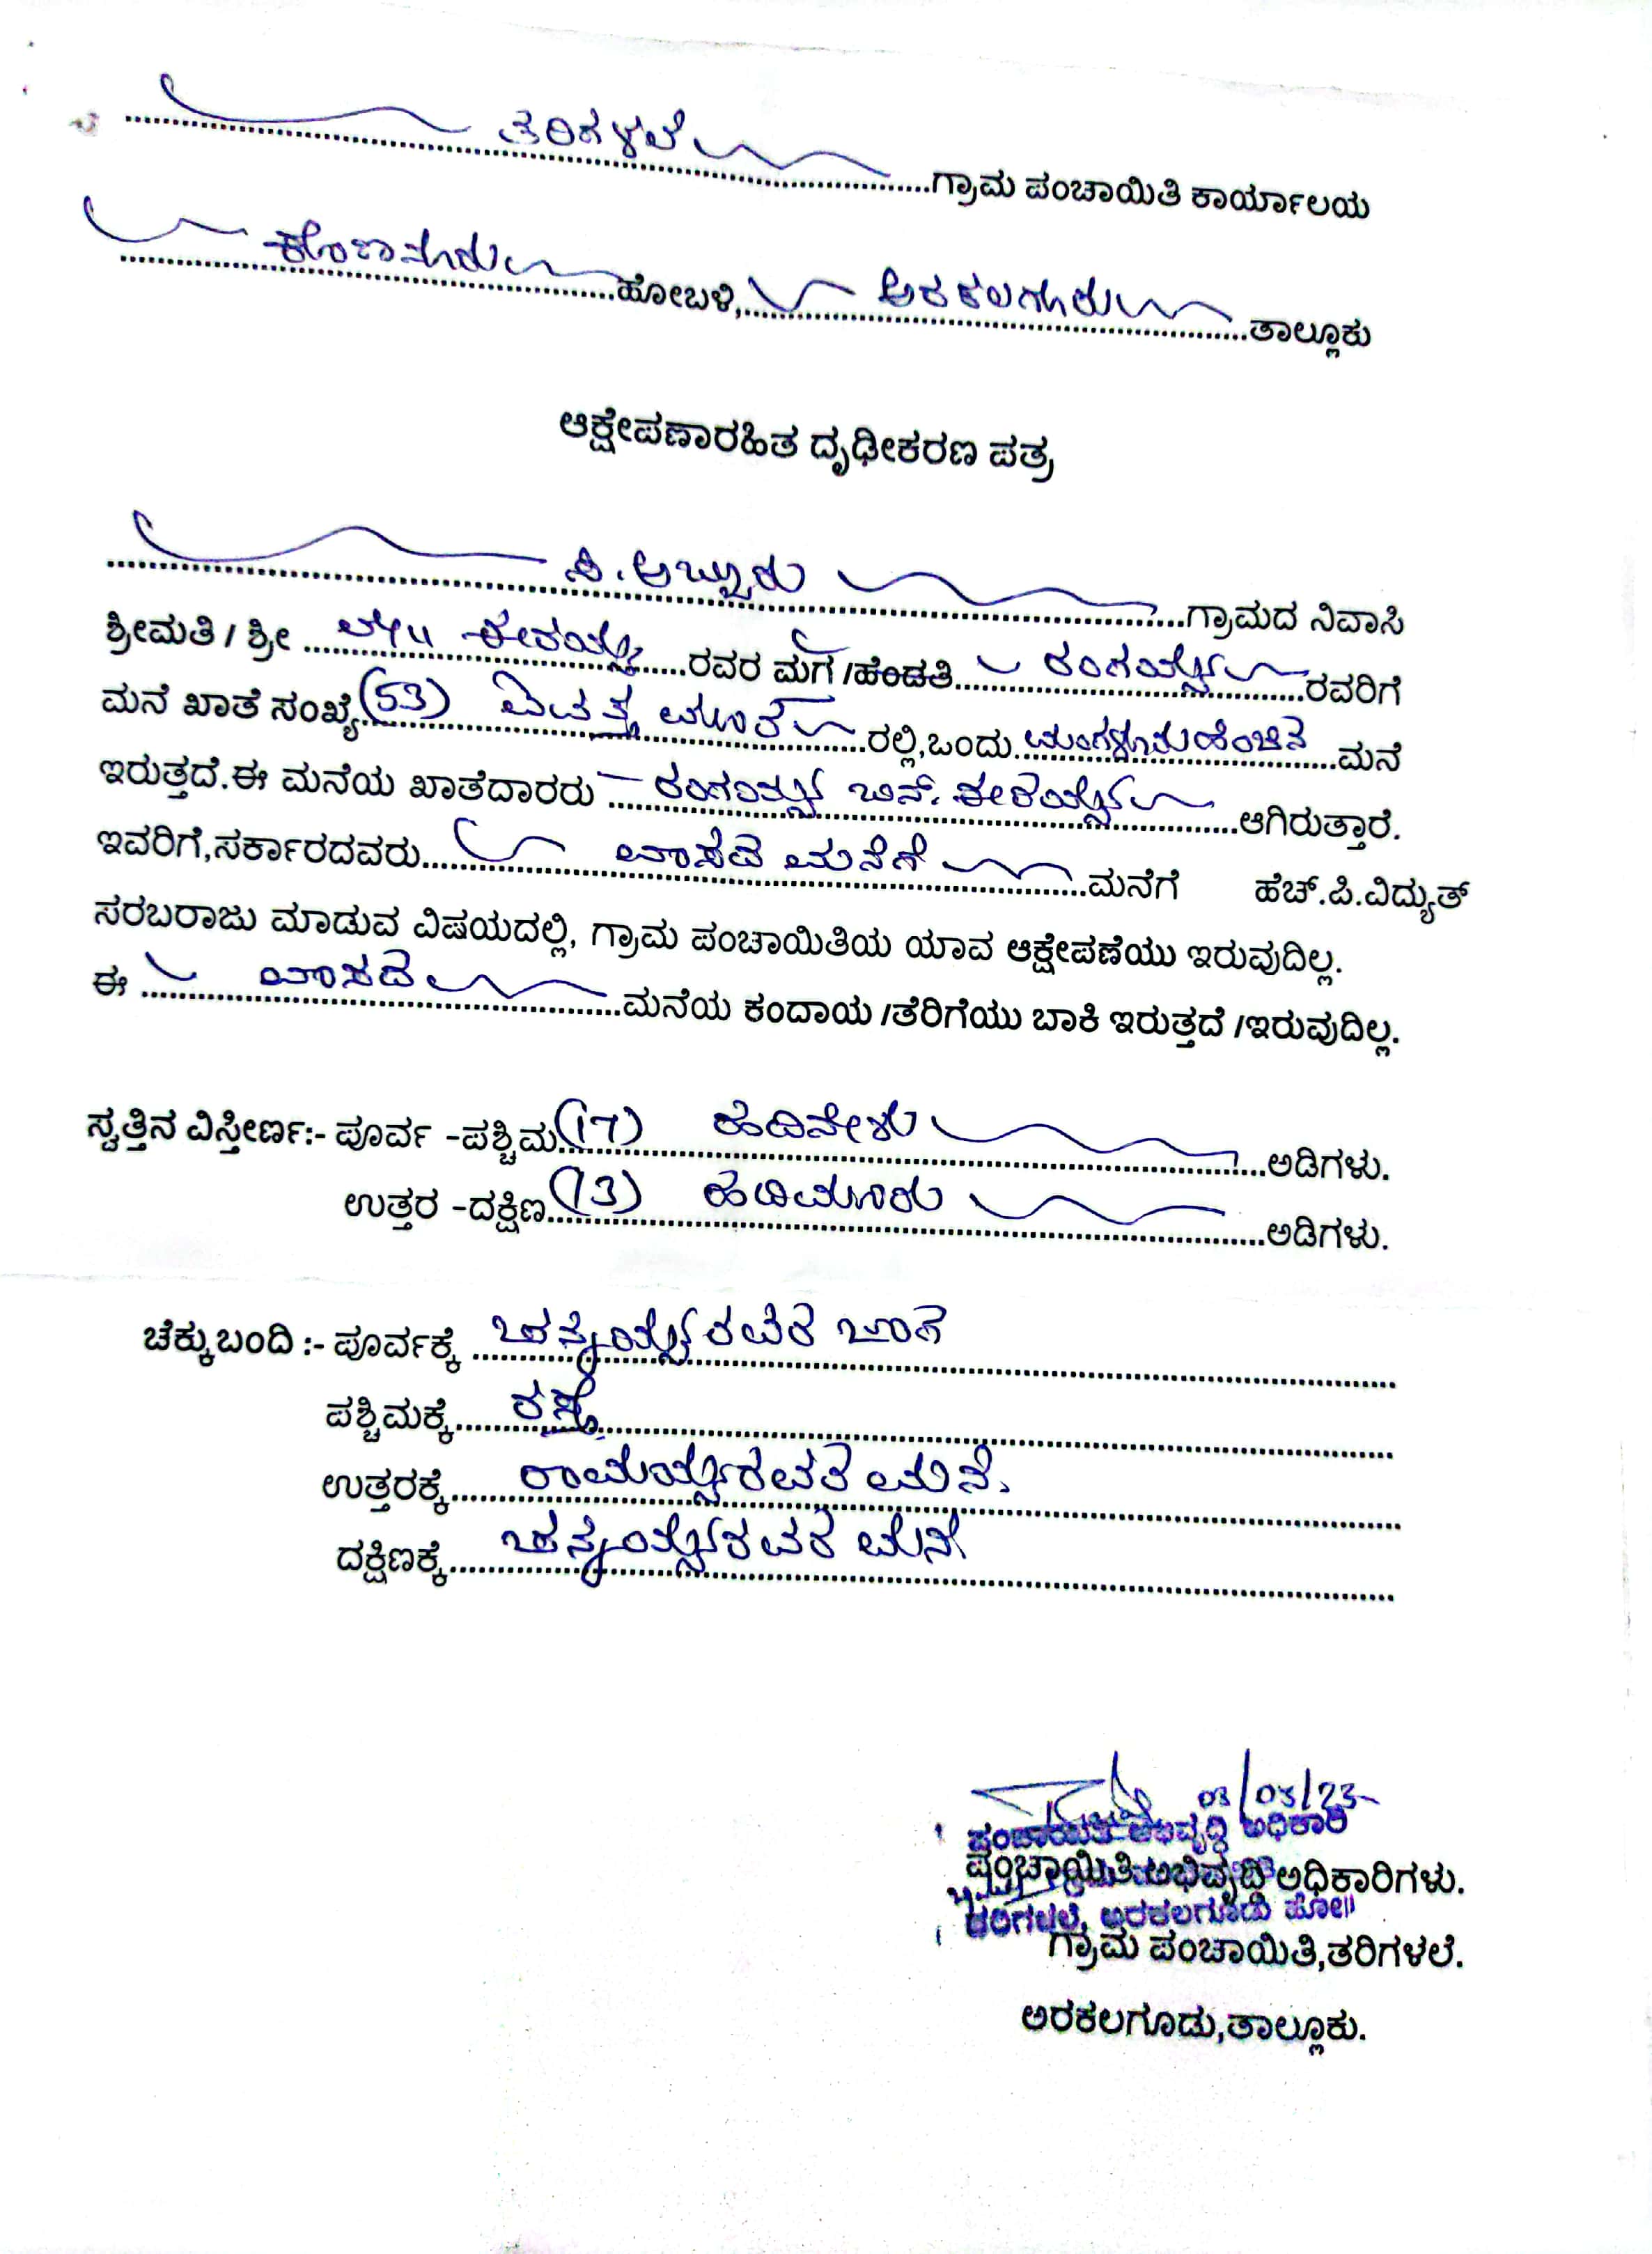 ತರಿಗಳಲೆ ಗ್ರಾಮ ಪಂಚಾಯಿತಿ ಕಾರ್ಯಾಲಯ
ಕೊಣನೂರು ಹೋಬಳಿ, ಅರಕಲಗೂಡು ತಾಲ್ಲೂಕು
ಆಕ್ಷೇಪಣಾರಹಿತ ದೃಢೀಕರಣ ಪತ್ರ
ಸಿ.ಅಬ್ಬೂರು ಗ್ರಾಮದ ನಿವಾಸಿ
ಶ್ರೀಮತಿ / ಶ್ರೀ ಈರಯ್ಯ ರವರ ಮಗ /ಹೆಂಡತಿ ರಂಗಯ್ಯ ರವರಿಗೆ
ಮನೆ ಖಾತೆ ಸಂಖ್ಯೆ (53) ಐವತ್ತ ಮೂರ ರಲ್ಲಿ,ಒಂದು ಮಂಗಳೂರುಹೆಂಚಿನ ಮನೆ
ಇರುತ್ತದೆ.ಈ ಮನೆಯ ಖಾತೆದಾರರು ರಂಗಯ್ಯ ಬಿನ್. ಈರಯ್ಯ ಆಗಿರುತ್ತಾರೆ.
ಇವರಿಗೆ,ಸರ್ಕಾರದವರು ವಾಸದ ಮನೆಗೆ ಮನೆಗೆ ಹೆಚ್.ಪಿ.ವಿದ್ಯುತ್
ಸರಬರಾಜು ಮಾಡುವ ವಿಷಯದಲ್ಲಿ, ಗ್ರಾಮ ಪಂಚಾಯಿತಿಯ ಯಾವ ಆಕ್ಷೇಪಣೆಯು ಇರುವುದಿಲ್ಲ.
ಈ ವಾಸದ ಮನೆಯ ಕಂದಾಯ /ತೆರಿಗೆಯು ಬಾಕಿ ಇರುತ್ತದೆ /ಇರುವುದಿಲ್ಲ.
ಸ್ವತ್ತಿನ ವಿಸ್ತೀರ್ಣ:- ಪೂರ್ವ -ಪಶ್ಚಿಮ (17) ಹದಿನೇಳು ಅಡಿಗಳು.
ಉತ್ತರ -ದಕ್ಷಿಣ (13) ಹದಿಮೂರು ಅಡಿಗಳು.
ಚೆಕ್ಕುಬಂದಿ :- ಪೂರ್ವಕ್ಕೆ ಚನ್ನಯ್ಯರವರ ಜಾಗ
ಪಶ್ಚಿಮಕ್ಕೆ ರಸ್ತೆ
ಉತ್ತರಕ್ಕೆ ರಾಮಯ್ಯರವರ ಮನೆ.
ದಕ್ಷಿಣಕ್ಕೆ ಚನ್ನಯ್ಯರವರ ಮನೆ
03/03/23
ಪಂಚಾಯಿತಿ ಅಭಿವೃದ್ಧಿ ಅಧಿಕಾರಿ
ಪಂಚಾಯಿತಿ ಅಭಿವೃದ್ಧಿ ಅಧಿಕಾರಿಗಳು.
ತರಿಗಳಲೆ, ಅರಕಲಗೂಡು
ಗ್ರಾಮ ಪಂಚಾಯಿತಿ,ತರಿಗಳಲೆ.
ಅರಕಲಗೂಡು,ತಾಲ್ಲೂಕು.